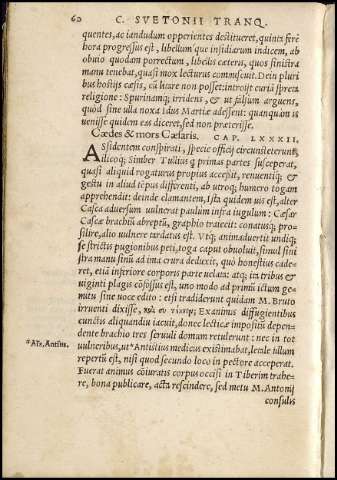 60 C. SVETONII TRANQ.
quentes, ac iandudum opperientes destitueret, quinta ferè
hora progressus est, libellumq; insidiarum indicem, ab
obuio quodam porrectum, libellis cæteris, quos sinistra
manu tenebat, quasi mox lecturus commiscuit. Dein pluri
bus hostijs cæsis, cũ litare non posset: introijt curiã spreta
religione: Spurinamq; irridens, & ut falsum arguens,
quòd sine ulla noxa Idus Martiæ adessent: quanquàm is
uenisse quidem eas diceret, sed non præterisse.
Cædes & mors Cæsaris. CAP. LXXXII.
Assidentem conspirati, specie officij circunsteterunt:
ilicoq; Simber Tullius q primas partes susceperat,
quasi aliquid rogaturus propius accessit, renuentiq; &
gestu in aliud tẽpus differenti, ab utroq; humero togam
apprehendit: deinde clamantem, Ista quidem uis est, alter
Casca aduersum uulnerat paulum infra iugulum: Cæsar
Cascæ brachiũ abreptũ, graphio traiecit: conatusq; pro-
silire, alio uulnere tardatus est. Vtq; animaduertit undiq;
se strictis pugionibus peti, toga caput obuoluit, simul sini
stra manu sinũ ad ima crura deduxit, quò honestius cade-
ret, etiã inferiore corporis parte uelata: atq; in tribus &
uiginti plagis cõfossus est, uno modo ad primũ ictum ge-
mitu sine uoce edito: etsi tradiderunt quidam M. Bruto
irruenti dixisse, καὶ συ τέκνον; Exanimis diffugientibus
cunctis aliquandiu iacuit, donec lecticæ impositũ depen-
dente brachio tres seruuli domum retulerunt: nec in tot
*Als, Antius. uulneribus, ut *Antistius medicus existimabat, letale illum
repertũ est, nisi quod secundo loco in pectore acceperat.
Fuerat animus cõiuratis corpus occisi in Tiberim trahe-
re, bona publicare, acta rescindere, sed metu M. Antonij
consulis